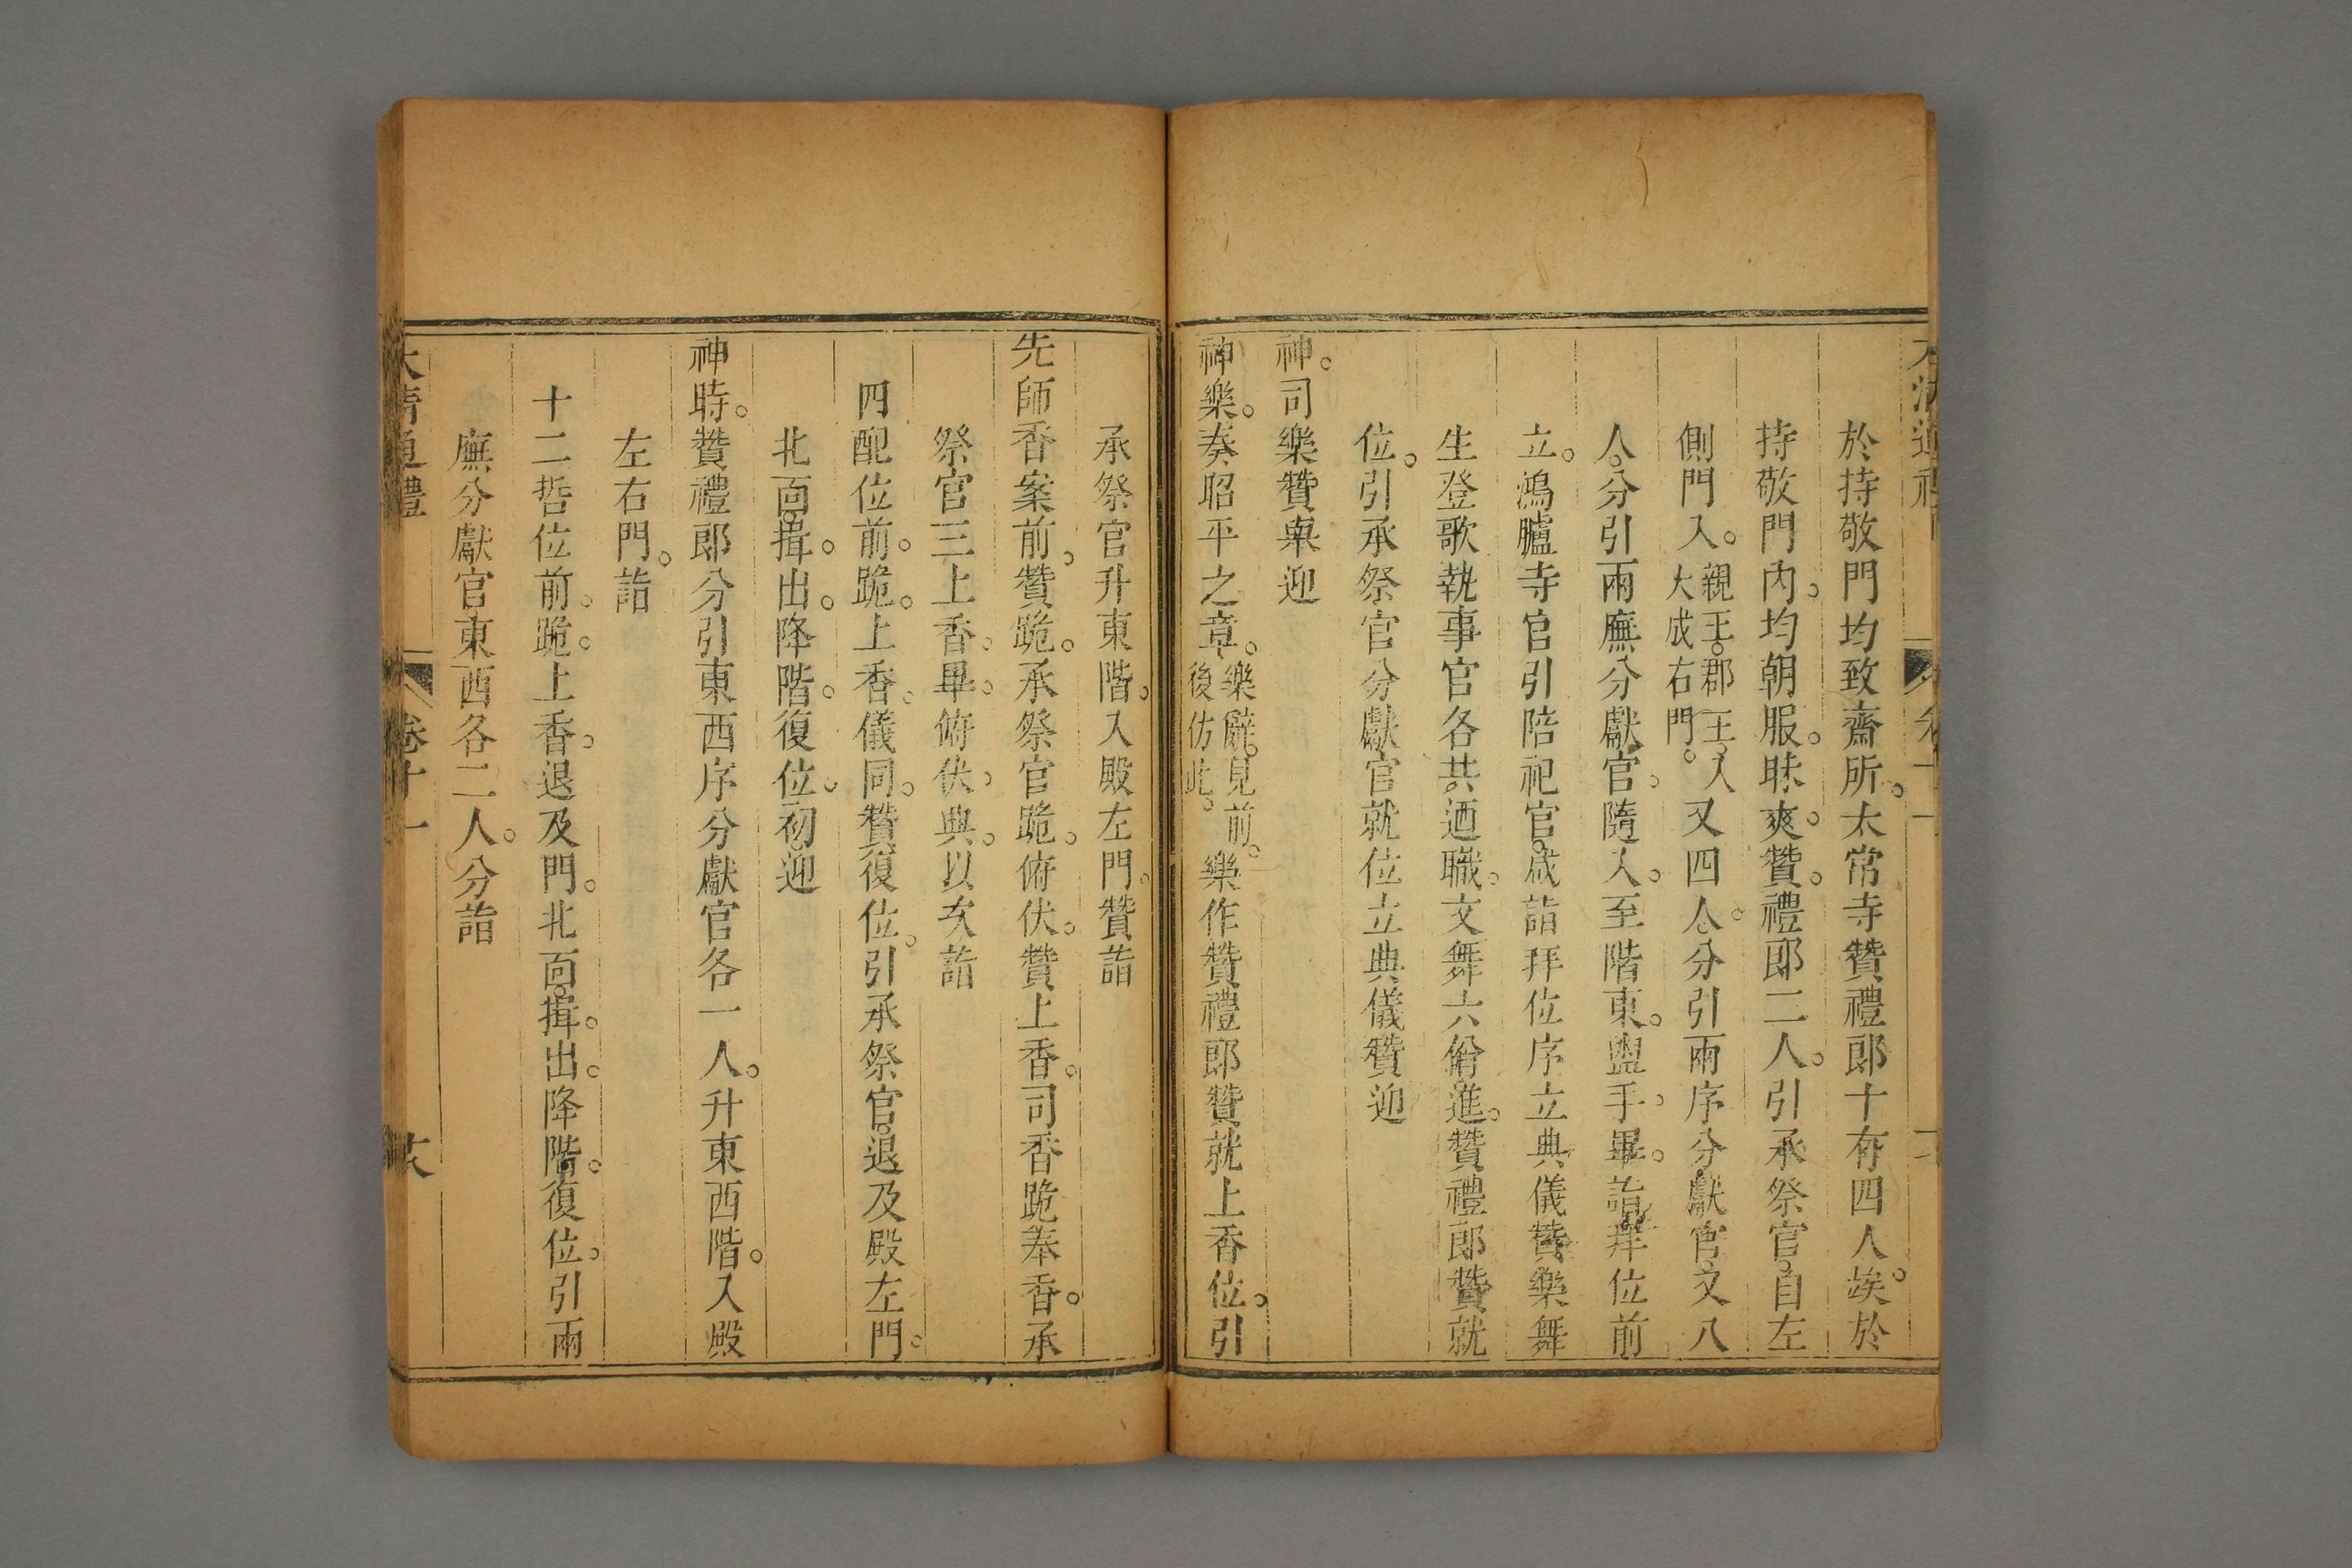 於持敬門均致齋所。太常寺贊禮郎十有四人。竢於
持敬門內。均朝服。昧爽。贊禮郎二人。引承祭官。自左
側門入。親王。郡王。入大成右門。又四人。分引兩序分獻官。又八
人。分引兩廡分獻官。隨入。至階東。盥手。畢。詣拜位前
立。鴻臚寺官引陪祀官。咸詣拜位序立典儀贊樂舞
生登歌執事官各共迺職。文舞六佾進。贊禮郎贊就
位。引承祭官分獻官就位立典儀贊迎
神。司樂贊舉迎
神樂。奏昭平之章。樂辭。見前。後仿此。樂作贊禮郎贊就上香位。引
承祭官升東階。入殿左門。贊詣
先師香案前。贊跪。承祭官跪。俯伏。贊上香。司香跪奉香。承
祭官三上香。畢。俯伏。興。以次詣
四配位前。跪。上香。儀同。贊復位。引承祭官。退及殿左門。
北面。揖。出。降階。復位。初迎
神時。贊禮郎分引東西序分獻官各一人。升東西階。入殿
左右門。詣
十二哲位前。跪。上香。退及門。北面。揖。出。降階。復位。引兩
廡分獻官東西各二人。分詣
大清通禮 卷十一